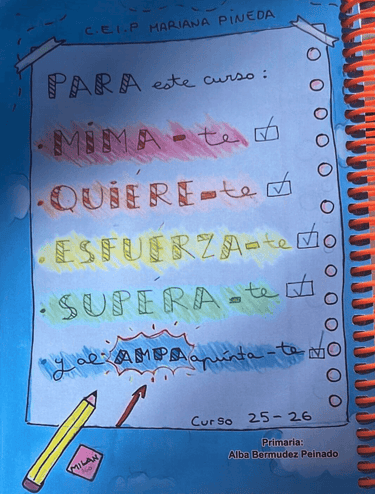 C.E.I.P MARIANA PINEDA
PARA este curso:
· MÍMA-te
· QUÍERE-te
· ESFUÉRZA-te
· SUPÉRA-te
· y al AMPA apúnta-te
Curso 25-26
MILAN
Primaria:
Alba Bermudez Peinado